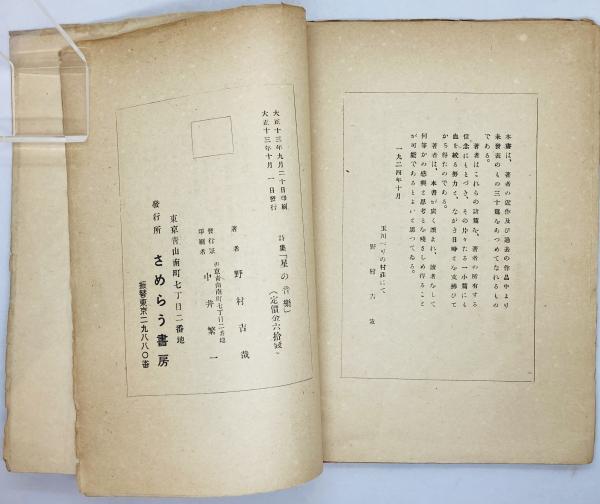 本書は、著者の近作及び過去の作品中より
未發表のもの三十篇をあつめてなれるもの
である。
著者はこれらの詩篇を、著者の所有する
信念にもとづき、その片々たる一小篇にも
血を絞る努力と、ながき日時とを支拂ひて
から得たのである。
著者は、本書が廣く讀まれ、讀者をして
何等かの感興と思考とを殘さしめ得ること
が可能であるとよいと思つてゐる。
一九二四年十月
玉川べりの村莊にて
野村吉哉
大正十三年九月二十日印刷
大正十三年十月一日發行
詩集「星の音樂」
(定價金六拾錢)
著者 野村吉哉
發行兼印刷者 中井繁一
東京青山南町七丁目二番地
東京青山南町七丁目二番地
發行所 さめらう書房
振替東京二九八八〇番